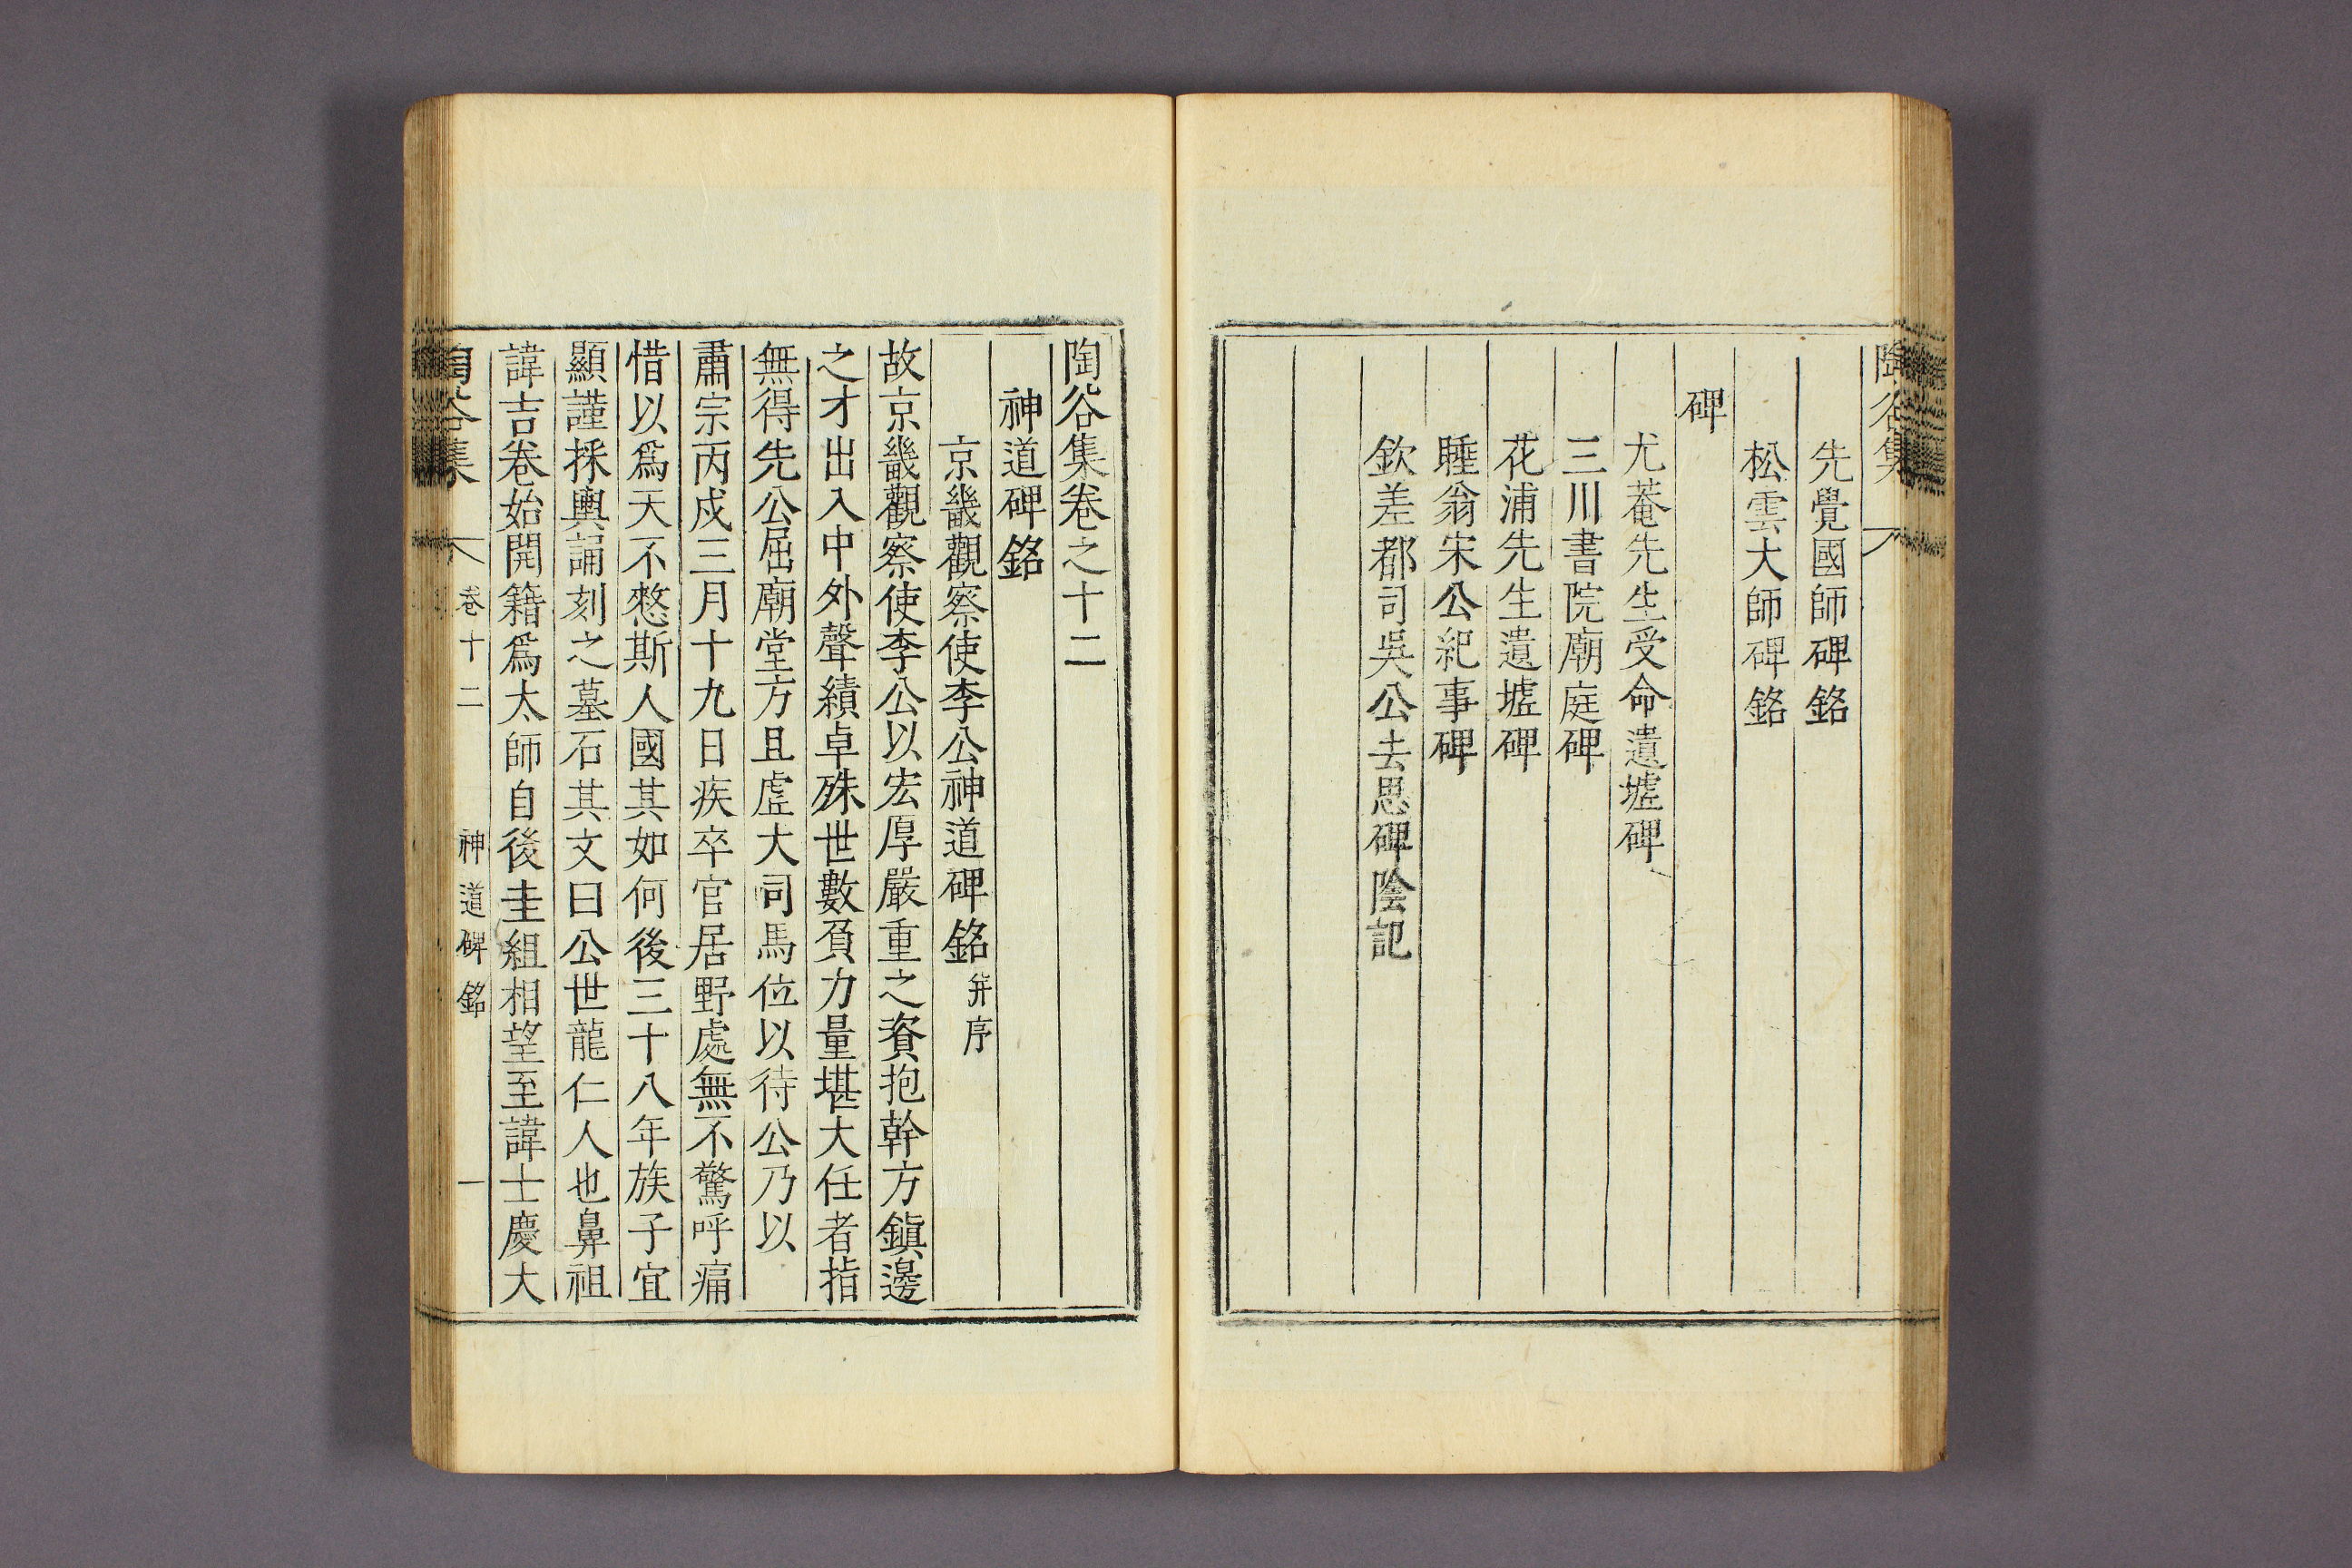 陶谷集
先覺國師碑銘
松雲大師碑銘
碑
尤菴先生受命遺墟碑
三川書院廟庭碑
花浦先生遺墟碑
睡翁宋公紀事碑
欽差都司吳公去思碑陰記
陶谷集卷之十二
神道碑銘
京畿觀察使李公神道碑銘 幷序
故京畿觀察使李公以宏厚嚴重之資抱幹方鎭邊
之才出入中外聲績卓殊世數負力量堪大任者指
無得先公屈廟堂方且虛大司馬位以待公乃以
肅宗丙戌三月十九日疾卒官居野處無不驚呼痛
惜以爲天不憖斯人國其如何後三十八年族子宜
顯謹採輿誦刻之墓石其文曰公世龍仁人也鼻祖
諱吉卷始開籍爲太師自後圭組相望至諱士慶大
陶谷集 卷十二 神道碑銘 一